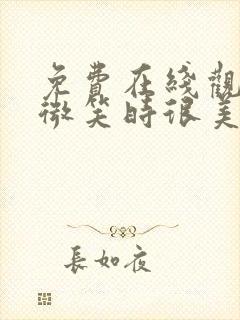 免費在綫觀
微笑時很美
長如夜